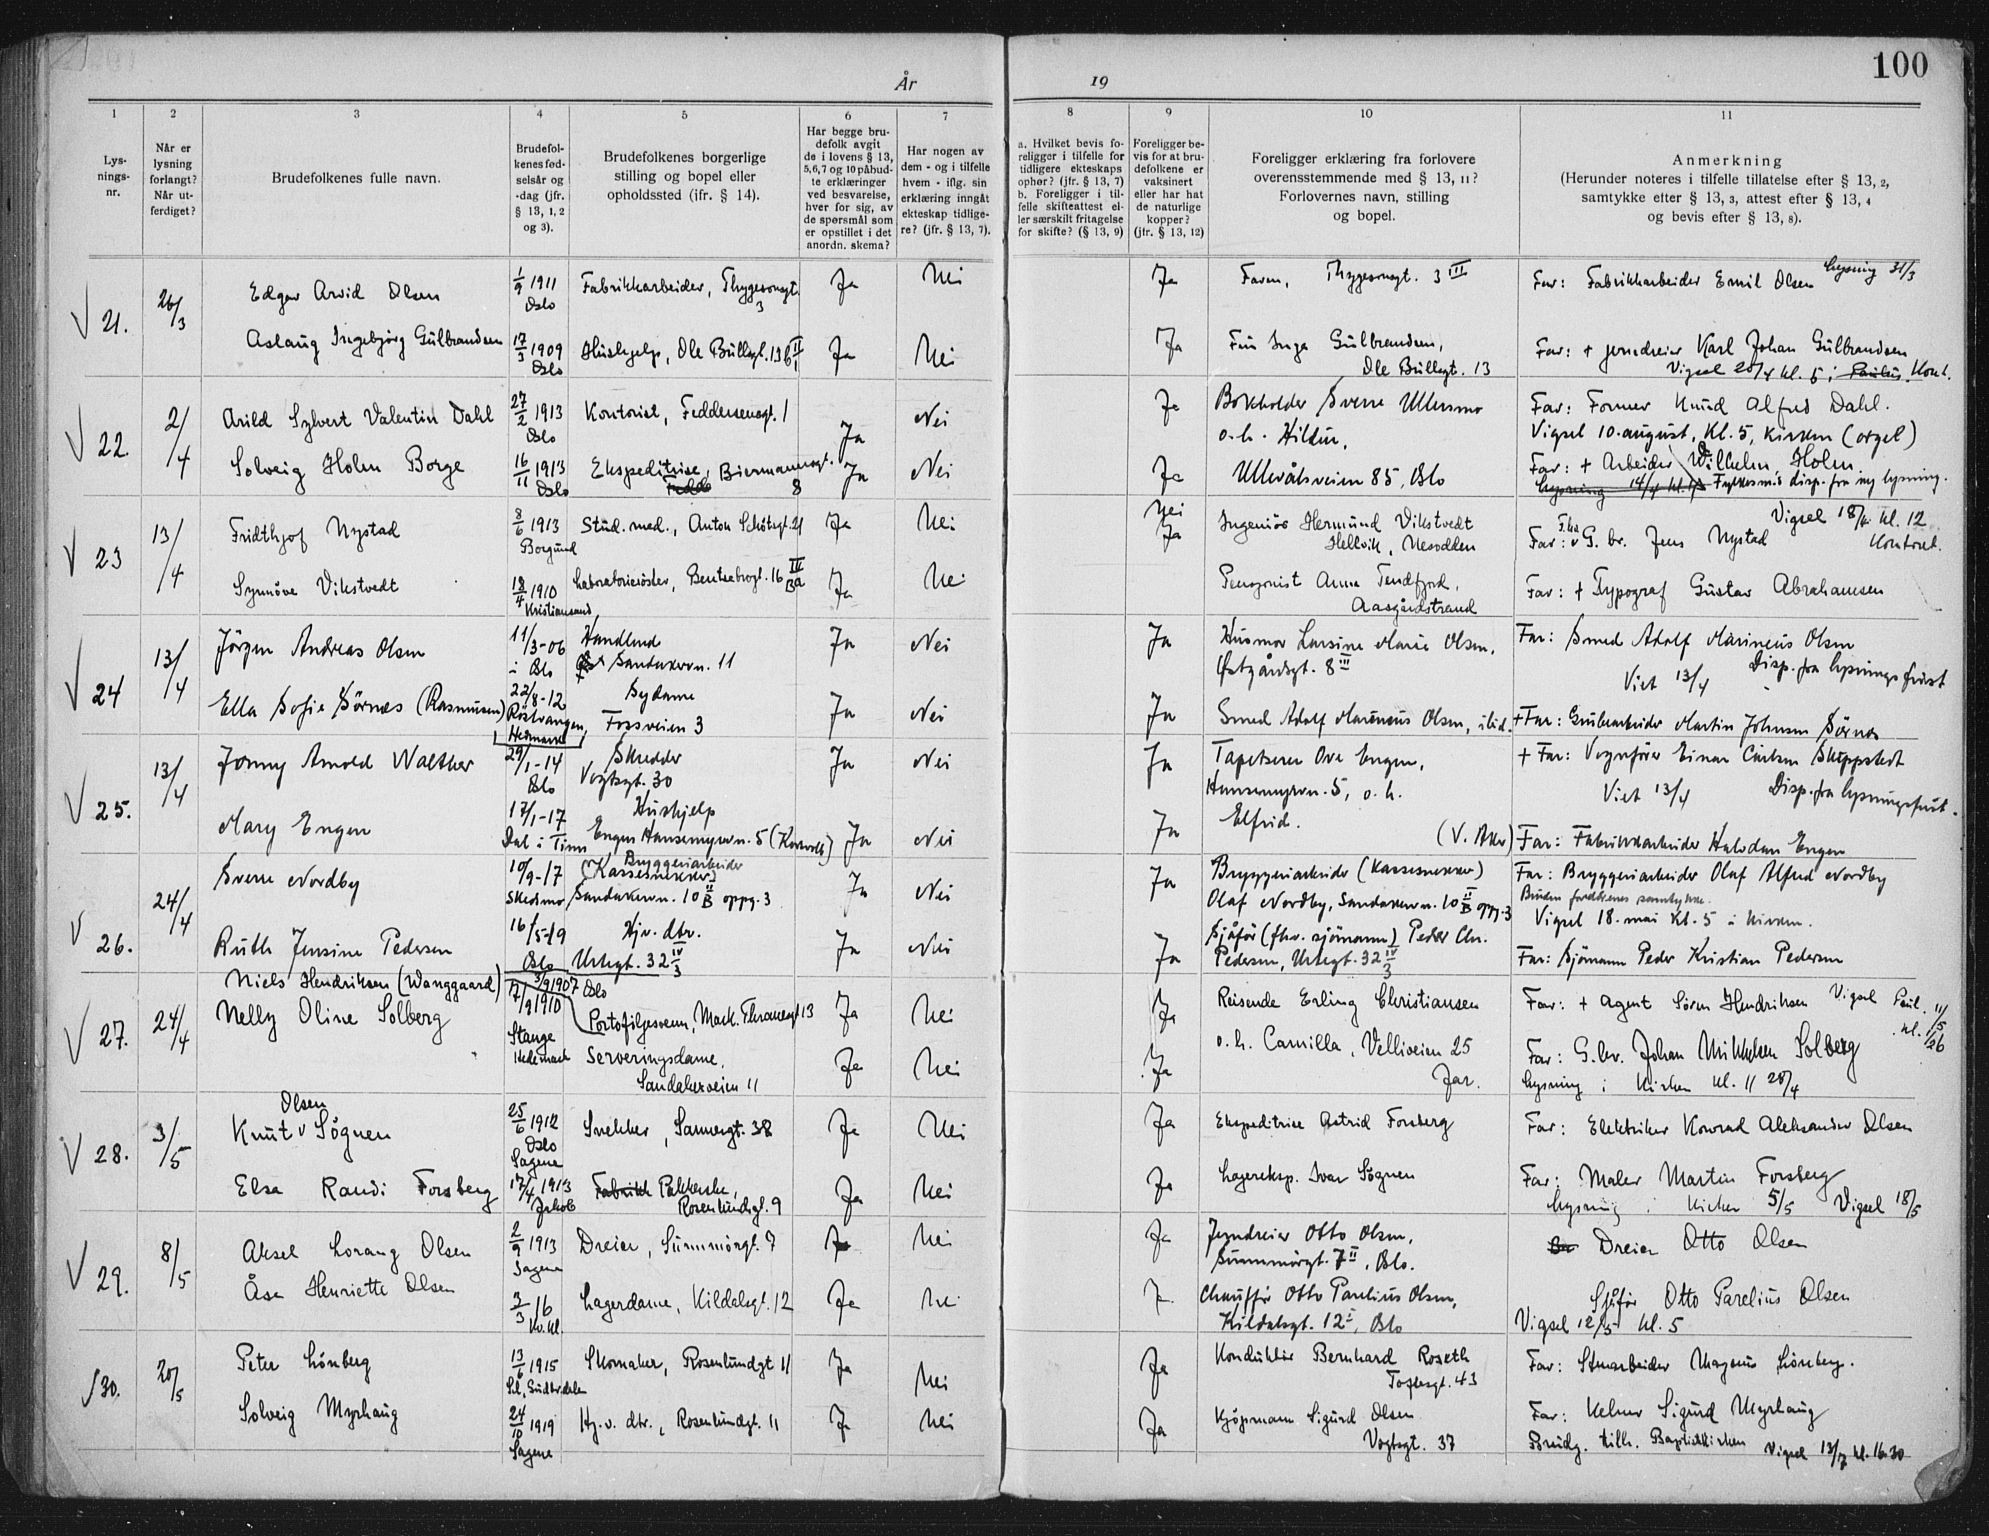 100
År
19
1
2
3
4
5
6
7
8
9
10
11
Lys-
nings-
nr.
Når er
lysning
forlangt?
Når ut-
ferdiget?
Brudefolkenes fulle navn.
Brudefol-
kenes fød-
selsår og
-dag (jfr.
§ 13, 1, 2
og 3).
Brudefolkenes borgerlige
stilling og bopel eller
opholdssted (ifr. § 14).
Har begge bru-
defolk avgit
de i lovens § 13,
5,6,7 og 10 påbud-
te erklæringer
ved besvarelse,
hver for sig, av
de spørsmål som
er opstillet i det
anordn. skema?
Har nogen av
dem - og i tilfelle
hvem - iflg. sin
erklæring inngåt
ekteskap tidlige-
re? (jfr. § 13, 7).
a. Hvilket bevis fo-
religger i tilfelle for
tidligere ekteskaps
ophør? (jfr. § 13, 7)
b. Foreligger i til-
felle skifteattest el-
ler særskilt fritagelse
for skifte? (§ 13, 9)
Foreligger be-
vis for at bru-
defolkene er
vaksinert
eller har hat
de naturlige
kopper?
(jfr. § 13, 12)
Foreligger erklæring fra forlovere
overensstemmende med § 13, 11?
Forlovernes navn, stilling
og bopel.
Anmerkning
(Herunder noteres i tilfelle tillatelse efter § 13, 2,
samtykke efter § 13, 3, attest efter § 13, 4
og bevis efter § 13, 8).
21. 26/3 Edgar Arvid Olsen 1/9 1911 Oslo Fabrikkarbeider, Thygesonsgt. 3 Ja Nei Ja Faren, Thygesonsgt. 3 III Far: Fabrikkarbeider Emil Olsen Lysning 31/3
Aslaug Ingebjørg Gulbrandsen 17/3 1909 Oslo Hushjelp, Ole Bullsgt. 13 Ja Nei Ja Fru Inga Gulbrandsen, Ole Bullsgt. 13 Far: + jerndreier Karl Johan Gulbrandsen
Vigsel 20/4 kl. 5 i Paulus. Kont.
22. 2/4 Arild Sylvert Valentin Dahl 27/2 1913 Oslo Kontorist, Feddersensgt. 1 Ja Nei Ja Bokholder Sverre Ullensmo Far: Former Knud Alfred Dahl.
o.h. Hildur, Vigsel 10. august, kl. 5, kirken (orgel)
Solveig Holm Borge 16/11 1913 Oslo Ekspeditrise, Biermannsgt. 8 Ja Nei Ja Ullevålsveien 85, Oslo Far: + Arbeider Wilhelm Holm.
Lysning 14/4 kl. 11 Fylkesmus disp. fra ny lysning.
23 13/4 Fridthjof Nystad 8/6 1913 Borgund Stud. med., Anton Schötsgt. 21 Ja Nei Nei Ja Ingeniør Hermund Vikstvedt Hellvik, Nesodden Vigsel 18/4 kl. 12 Kontoret.
Far: f.hv. G. br. Jens Nystad
Synnöve Vikstvedt 18/4 1910 Kristiansand Laboratoriesöster, Bentsebrogt. 16 IV Ba Ja Nei Pensjonist Anna Tendfjord, Aasgårdstrand Far: + Typograf Gustav Abrahamsen
24 13/4 Jörgen Andreas Olsen 11/3-06 i Oslo Handlend Sandakerv. 11 Ja Nei Ja Husmor Larsine Marie Olsen, Östgårdsgt. 8 III Far: Smed Adolf Marinius Olsen
Viet 13/4 Disp. fra lysningsfrist
Ella Sofie Sörnes (Rasmussen) 22/8-12 Röstvangen, Hedmark Sydame Fossveien 3 Ja Nei Ja Smed Adolf Marinius Olsen, ibid. + Far: Grubearbeider Martin Johnsen Sörnes
25. 13/4 Jonny Arnold Walther 29/1-14 Oslo Skredder Vogtsgt. 30 Ja Nei Ja Tapetserer Ove Engen, Hansemyrvn. 5, o.h. + Far: Vognförer Einar Carlsen Skippstedt
Viet 13/4 Disp. fra lysningsfrist.
Mary Engen 17/1-17 Dal i Tinn Hushjelp Engen Hansemyrvn. 5 Ja Nei Ja Elfrid. (V. Aker) Far: Fabrikkarbeider Halvdan Engen
26. 24/4 Sverre Nordby 10/9-17 Skedsmo Bryggeriarbeider (Kassesnekker) Sandakervn. 10 II B oppg. 3 Ja Nei Ja Bryggeriarbeider (kassesnekker) Olaf Nordby, Sandakervn. 10 II B oppg. 3 Far: Bryggeriarbeider Olaf Alfred Nordby
Bruden foreldrenes samtykke.
Vigsel 18. mai kl. 5 i kirken.
Ruth Jensine Pedersen 16/5-19 Oslo Hjv. dtr. Urtegt. 32 IV 3 Ja Nei Ja Sjåför (fhv. sjömann) Peder Chr. Pedersen, Urtegt. 32 IV 3 Far: Sjömann Peder Kristian Pedersen
27. 24/4 Niels Hendriksen (Wanggaard) 3/9 1907 Oslo Portoföljesvenn, Mark. Thranesgt 13 Ja Nei Ja Reisende Erling Christiansen Far: + Agent Sören Hendriksen Vigsel Paul. 11/5 kl. 1/2 6
Nelly Oline Solberg 7/9 1910 Stange Hedemark Serveringsdame, Sandakerveien 11 Ja Nei Ja o.h. Camilla, Velliveien 25 Jar. Far: G.br. Johan Mikkelsen Solberg
Lysning i kirken kl. 11 28/4
28. 3/5 Knut Olsen Sögnen 25/6 1912 Oslo Sagene Snekker, Sannergt. 38 Ja Nei Ja Ekspeditrise Astrid Forsberg Far: Elektriker Konrad Aleksander Olsen
Elsa Randi Forsberg 17/4 1913 Jakob Fabrikk Pakkerske, Rosenlundsgt. 9 Ja Nei Ja Lagereksp. Ivar Sögnen Far: Maler Martin Forsberg
Lysning i kirken 5/5 Vigsel 18/5
29. 8/5 Aksel Lorang Olsen 2/9 1913 Sagene Dreier, Sunnmörgt. 7 Ja Nei Ja Jerndreier Otto Olsen, Sunnmörgt. 7 II, Oslo. Dreier Otto Olsen
Åse Henriette Olsen 3/3 16 Kv. kl. Lagerdame, Kildalsgt. 12 Ja Nei Ja Chaufför Otto Parelius Olsen, Kildalsgt. 12 I, Oslo Sjåför Otto Parelius Olsen
Vigsel 12/5 kl. 5
30. 20/5 Peter Lönberg 13/6 1915 Sel, Gudbr.dalen Skomaker, Rosenlundgt 11 Ja Nei Ja Konduktör Bernhard Roseth Toftesgt. 43 Far: Stenarbeider Magnus Lönberg.
Solveig Myrhaug 24/10 1919 Sagene Hj.v. dtr., Rosenlundgt. 11 Ja Nei Ja Kjöpmann Sigurd Olsen Vogtsgt. 37 Far: Kelner Sigurd Myrhaug
Brudg. tilh. Baptistkirken Vigsel 13/7 kl. 16.30